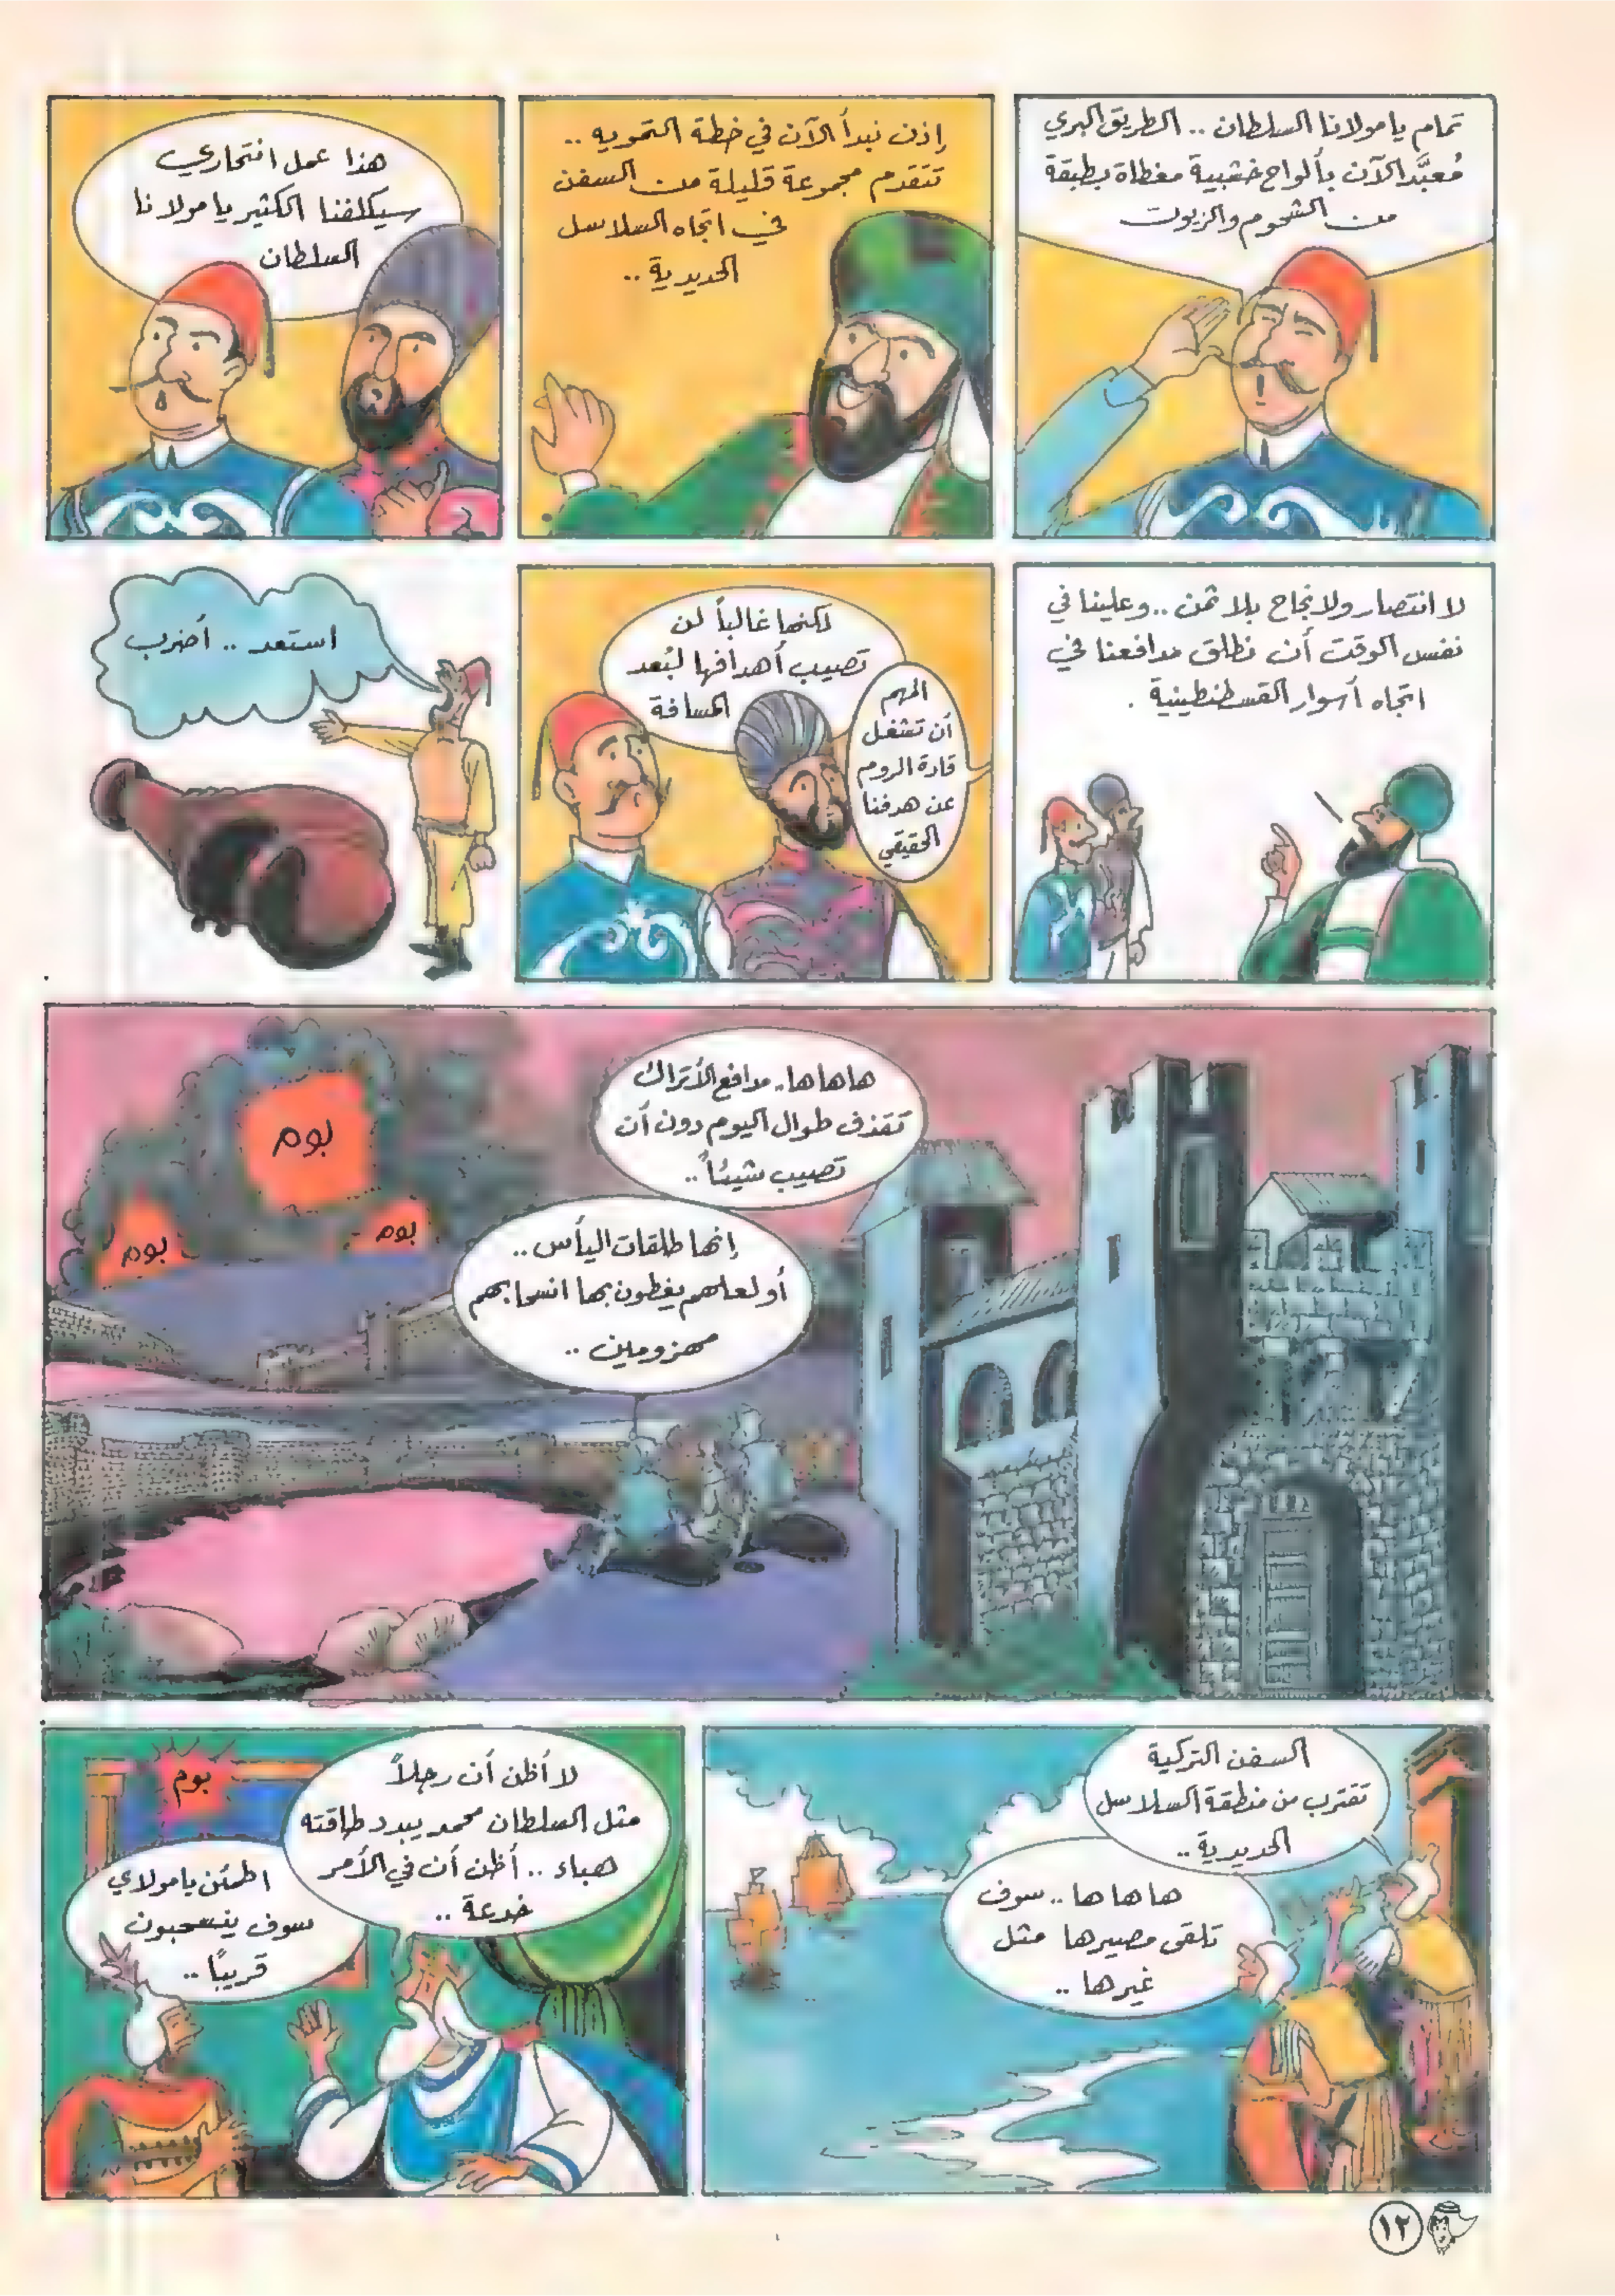 تمام يا مولانا السلطان .. الطريق البري
مُعبَّد الآن بألواح خشبية مغطاة بطبقة
من الشحوم والزيوت
إذن نبدأ الآن في خطة التمويه ..
تتقدم مجموعة قليلة من السفن
في اتجاه السلاسل
الحديدية ..
هذا عمل انتحاري
سيكلفنا الكثير يا مولانا
السلطان
لا انتصار ولا نجاح بلا ثمن .. وعلينا في
نفس الوقت أن نطلق مدافعنا في
اتجاه أسوار القسطنطينية .
لكنها غالباً لن
تصيب أهدافها لبُعد
المسافة
المهم
أن تشغل
قادة الروم
عن هدفنا
الحقيقي
استعد .. أضرب
هاهاها.. مدافع الأتراك
تقذف طوال اليوم دون أن
تصيب شيئاً ..
إنها طلقات اليأس ..
أو لعلهم يغطون بها انسحابهم
مهزومين ..
بوم
بوم
بوم
السفن التركية
تقترب من منطقة السلاسل
الحديدية ..
ها ها ها .. سوف
تلقى مصيرها مثل
غيرها ..
لا أظن أن رجلاً
مثل السلطان محمد يبدد طاقته
هباء .. أظن أن في الأمر
خدعة ..
بوم
اطمئن يا مولاي
سوف ينسحبون
قريبًا ..
١٢